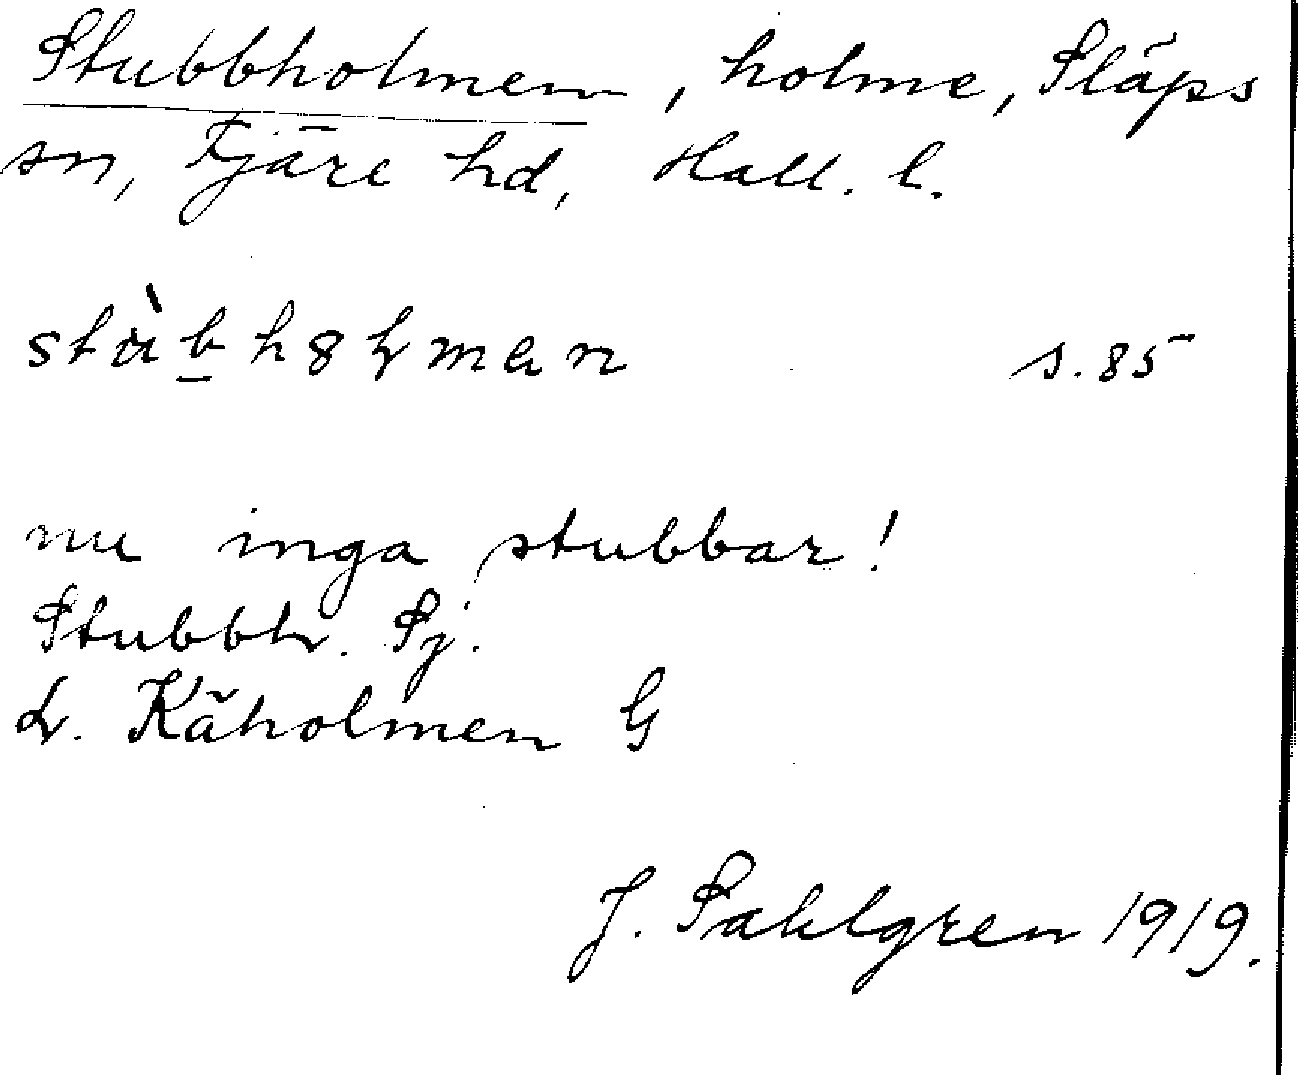 Stubbholmen, holme, Släps
sn, Fjäre hd, Hall. l.
stùb̲h8ɭmɐn s. 85
nu inga stubbar!
Stubbh. Sj.
L. Kåholmen G
J. Sahlgren 1919.